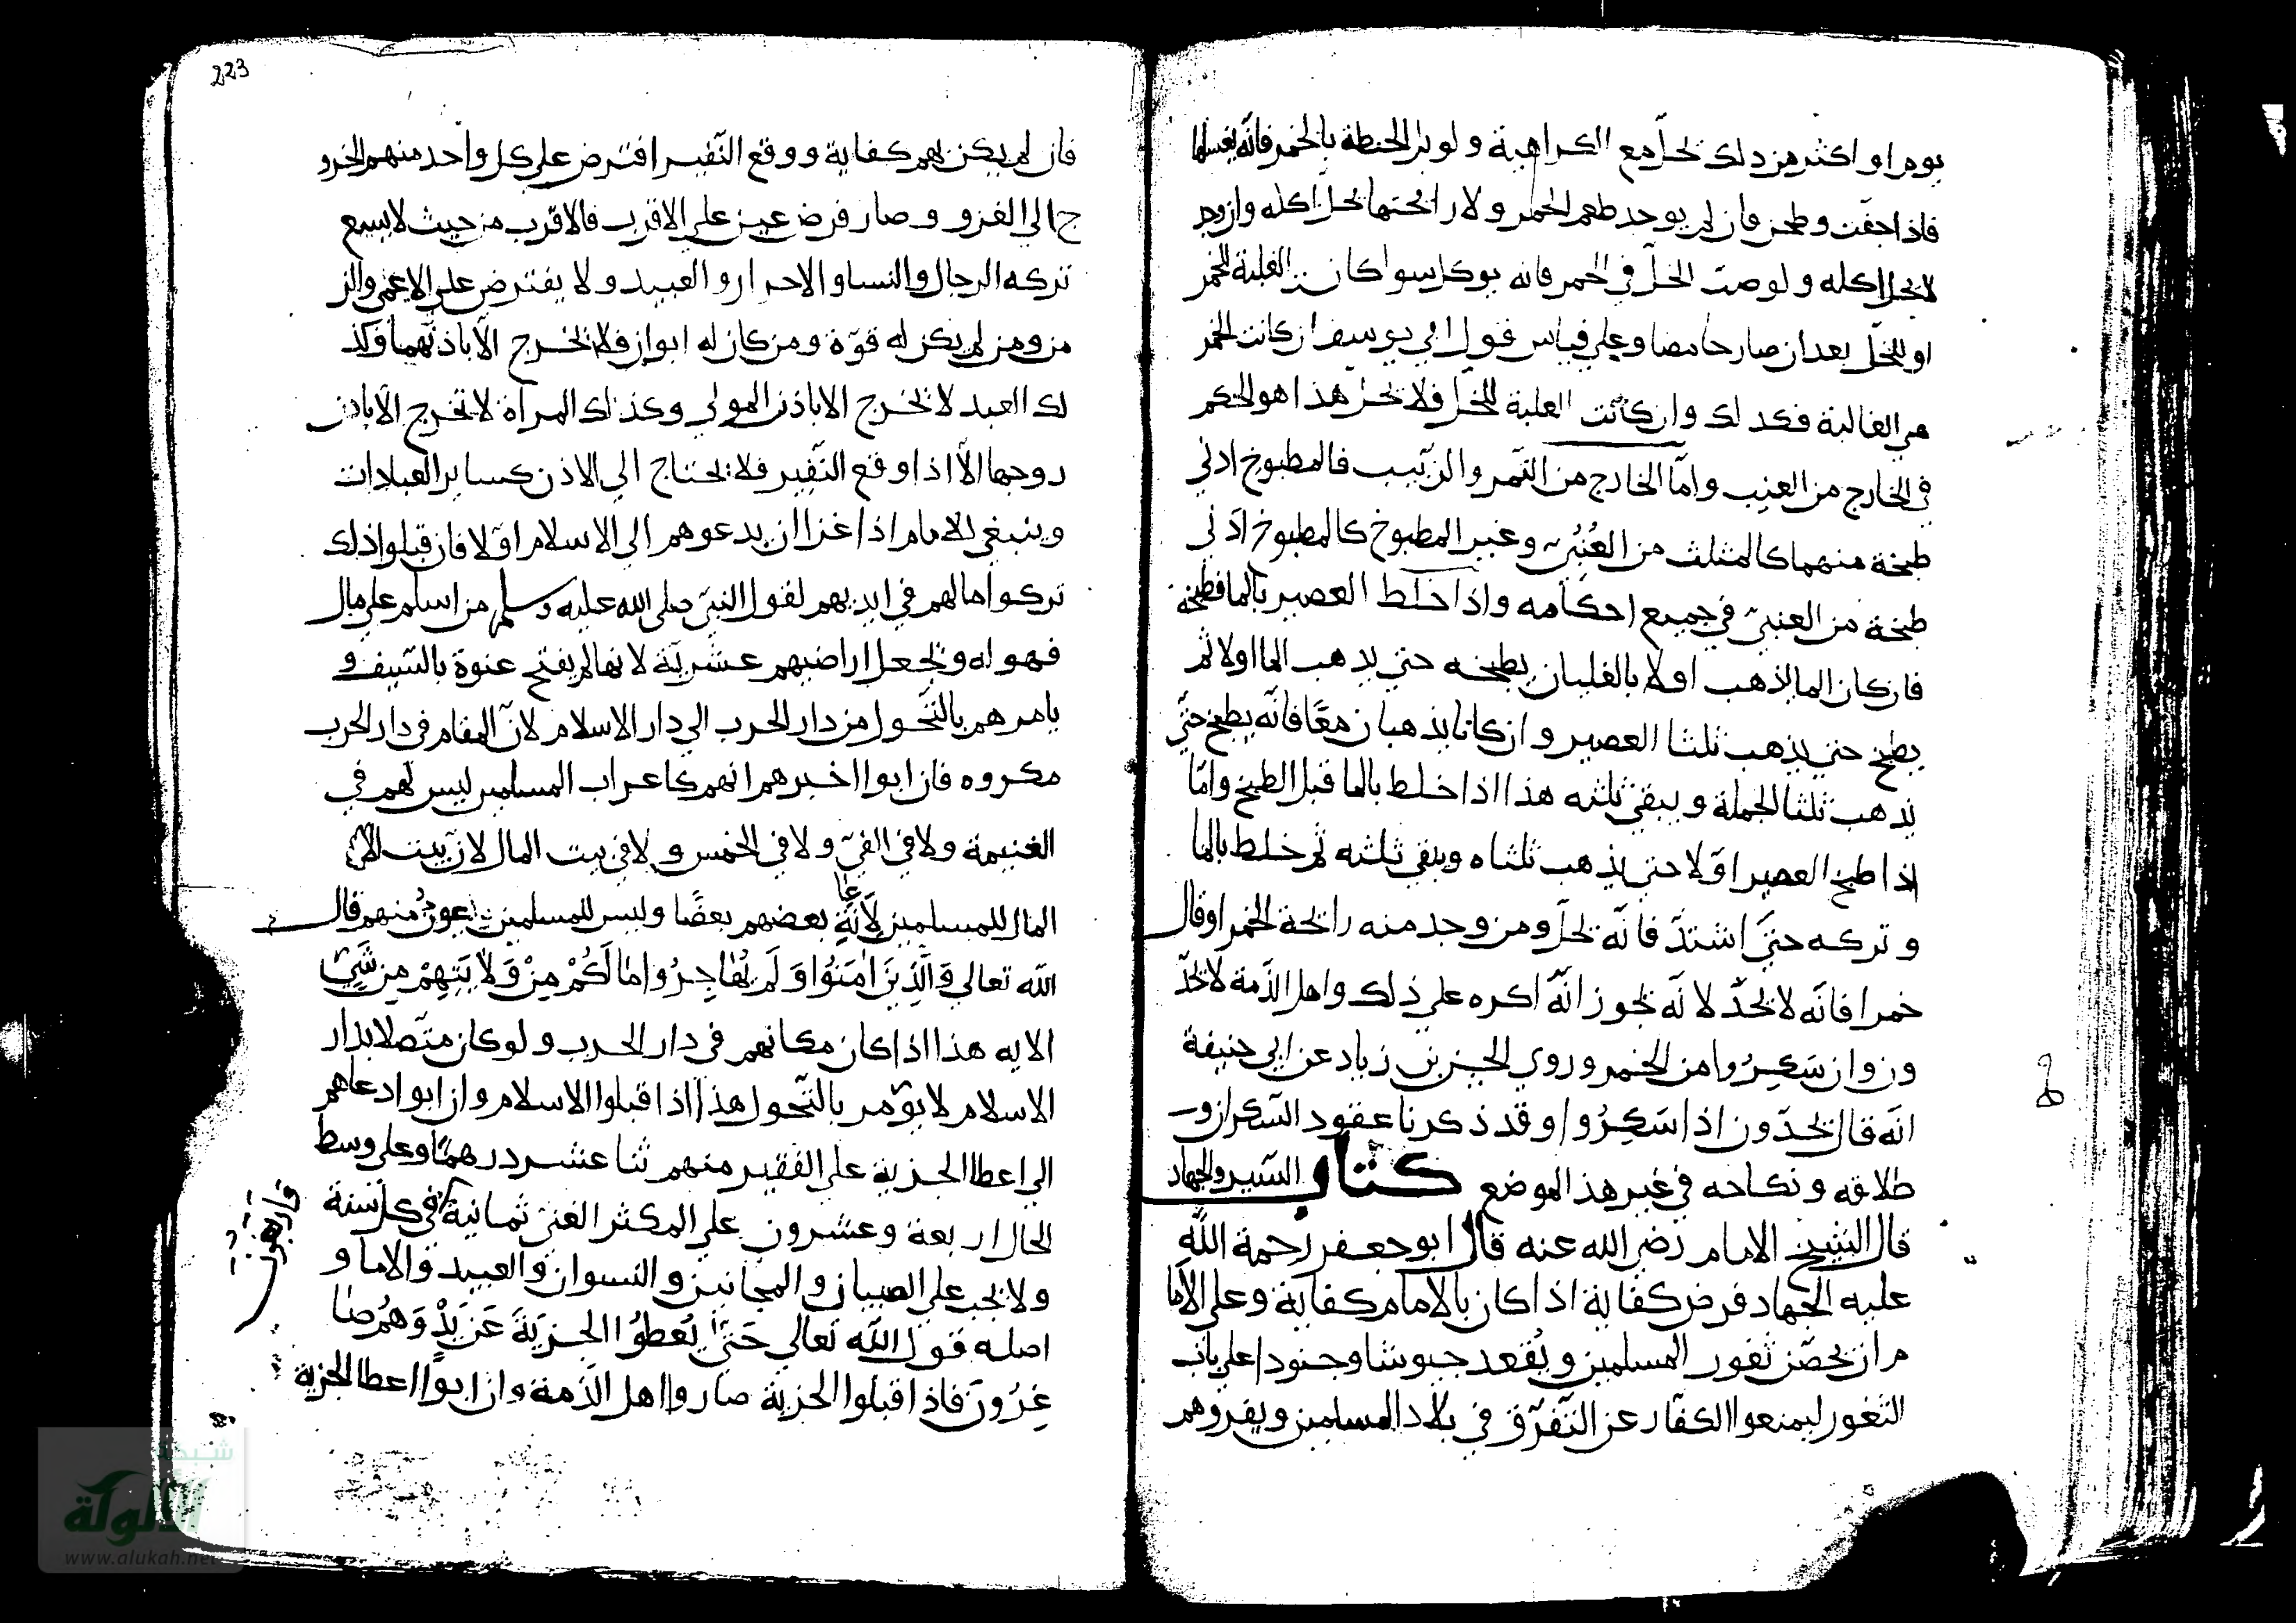 يوم او اكثر من ذلك يحل مع الكراهية ولو بل الحنطة بالخمر فانه يغسلها
فاذا جفت وطحن فان لم يوجد طعم الخمر ولا رائحتها يحل اكله وان وجد
لا يحل اكله ولو صب الخل في الخمر فانه يوكل سوا كانت الغلبة للخمر
او للخل بعد ان صار حامضا وعلى قياس قول ابي يوسف ان كانت الخمر
هي الغالبة فكذلك وان كانت الغلبة للخل فلا يحل هذا هو الحكم
في الخارج من العنب واما الخارج من التمر والزبيب فالمطبوخ ادنى
طبخة منهما كالمثلث من العنبي وغير المطبوخ كالمطبوخ ادنى
طبخة من العنبي في جميع احكامه واذا خلط العصير بالما فطبخه
فان كان الما يذهب اولا بالغليان يطبخه حتى يذهب الما اولا ثم
يطبخ حتى يذهب ثلثا العصير وان كانا يذهبان معا فانه يطبخ حتى
يذهب ثلثا الجملة ويبقى ثلثه هذا اذا خلط بالما قبل الطبخ واما
اذا طبخ العصير اولا حتى يذهب ثلثاه ويبقى ثلثه ثم خلط بالما
وتركه حتى اشتد فانه يحل ومن وجد منه رائحة الخمر او قال
خمرا فانه لا يحد لانه يجوز انه اكره على ذلك واهل الذمة لا يحد
ون وان سكروا من الخمر وروي الحسن بن زياد عن ابي حنيفة
انه قال يحدون اذا سكروا وقد ذكرنا عقود السكران و
طلاقه ونكاحه في غير هذا الموضع كتاب السير والجهاد
قال الشيخ الامام رضي الله عنه قال ابو جعفر رحمة الله
عليه الجهاد فرض كفاية اذا كان بالامام كفاية وعلى الاما
م ان يحصن ثغور المسلمين ويقعد جيوشا وجنودا على باب
الثغور ليمنعوا الكفار عن التفرق في بلاد المسلمين ويقروهم
223
فان لم يكن لهم كفاية ووقع النفير افترض على كل واحد منهم الخرو
ج الى الغزو وصار فرض عين على الاقرب فالاقرب من حيث لا يسع
تركه الرجال والنسا والاحرار والعبيد ولا يفترض على الاعمى والز
من ومن لم يكن له قوة ومن كان له ابوان فلا يخرج الا باذنهما وكذ
لك العبد لا يخرج الا باذن المولى وكذلك المراة لا تخرج الا باذن
زوجها الا اذا وقع النفير فلا يحتاج الى الاذن كساير العبادات
وينبغي للامام اذا غزا ان يدعوهم الى الاسلام اولا فان قبلوا ذلك
تركوا مالهم في ايديهم لقول النبي صلى الله عليه وسلم من اسلم على مال
فهو له ويجعل اراضيهم عشرية لانها لم يفتح عنوة بالسيف و
يامرهم بالتحول من دار الحرب الى دار الاسلام لان المقام في دار الحرب
مكروه فان ابوا اخبرهم انهم كاعراب المسلمين ليس لهم في
الغنيمة ولا في الفي ولا في الخمس ولا في بيت المال لان بيت
المال للمسلمين بعضهم بعضا وليس للمسلمين منهم قال
الله تعالى والذين امنوا ولم يهاجروا ما لكم من ولايتهم من شي
الايه هذا اذا كان مكانهم في دار الحرب ولو كان متصلا بدار
الاسلام لا يومر بالتحول هذا اذا قبلوا الاسلام وان ابوا دعاهم
الى اعطا الجزية على الفقير منهم ثنا عشر درهما وعلى وسط
الحال اربعة وعشرون على المكثر الغني ثمانية في كل سنة
واربعون
ولا يجب على الصبيان والمجانين والنسوان والعبيد والاما و
اصله قول الله تعالى حتى يعطوا الجزية عن يد وهم صا
غرون فاذا قبلوا الجزية صاروا اهل الذمة وان ابوا اعطا الجزية
شبكة
الألوكة
www.alukah.net